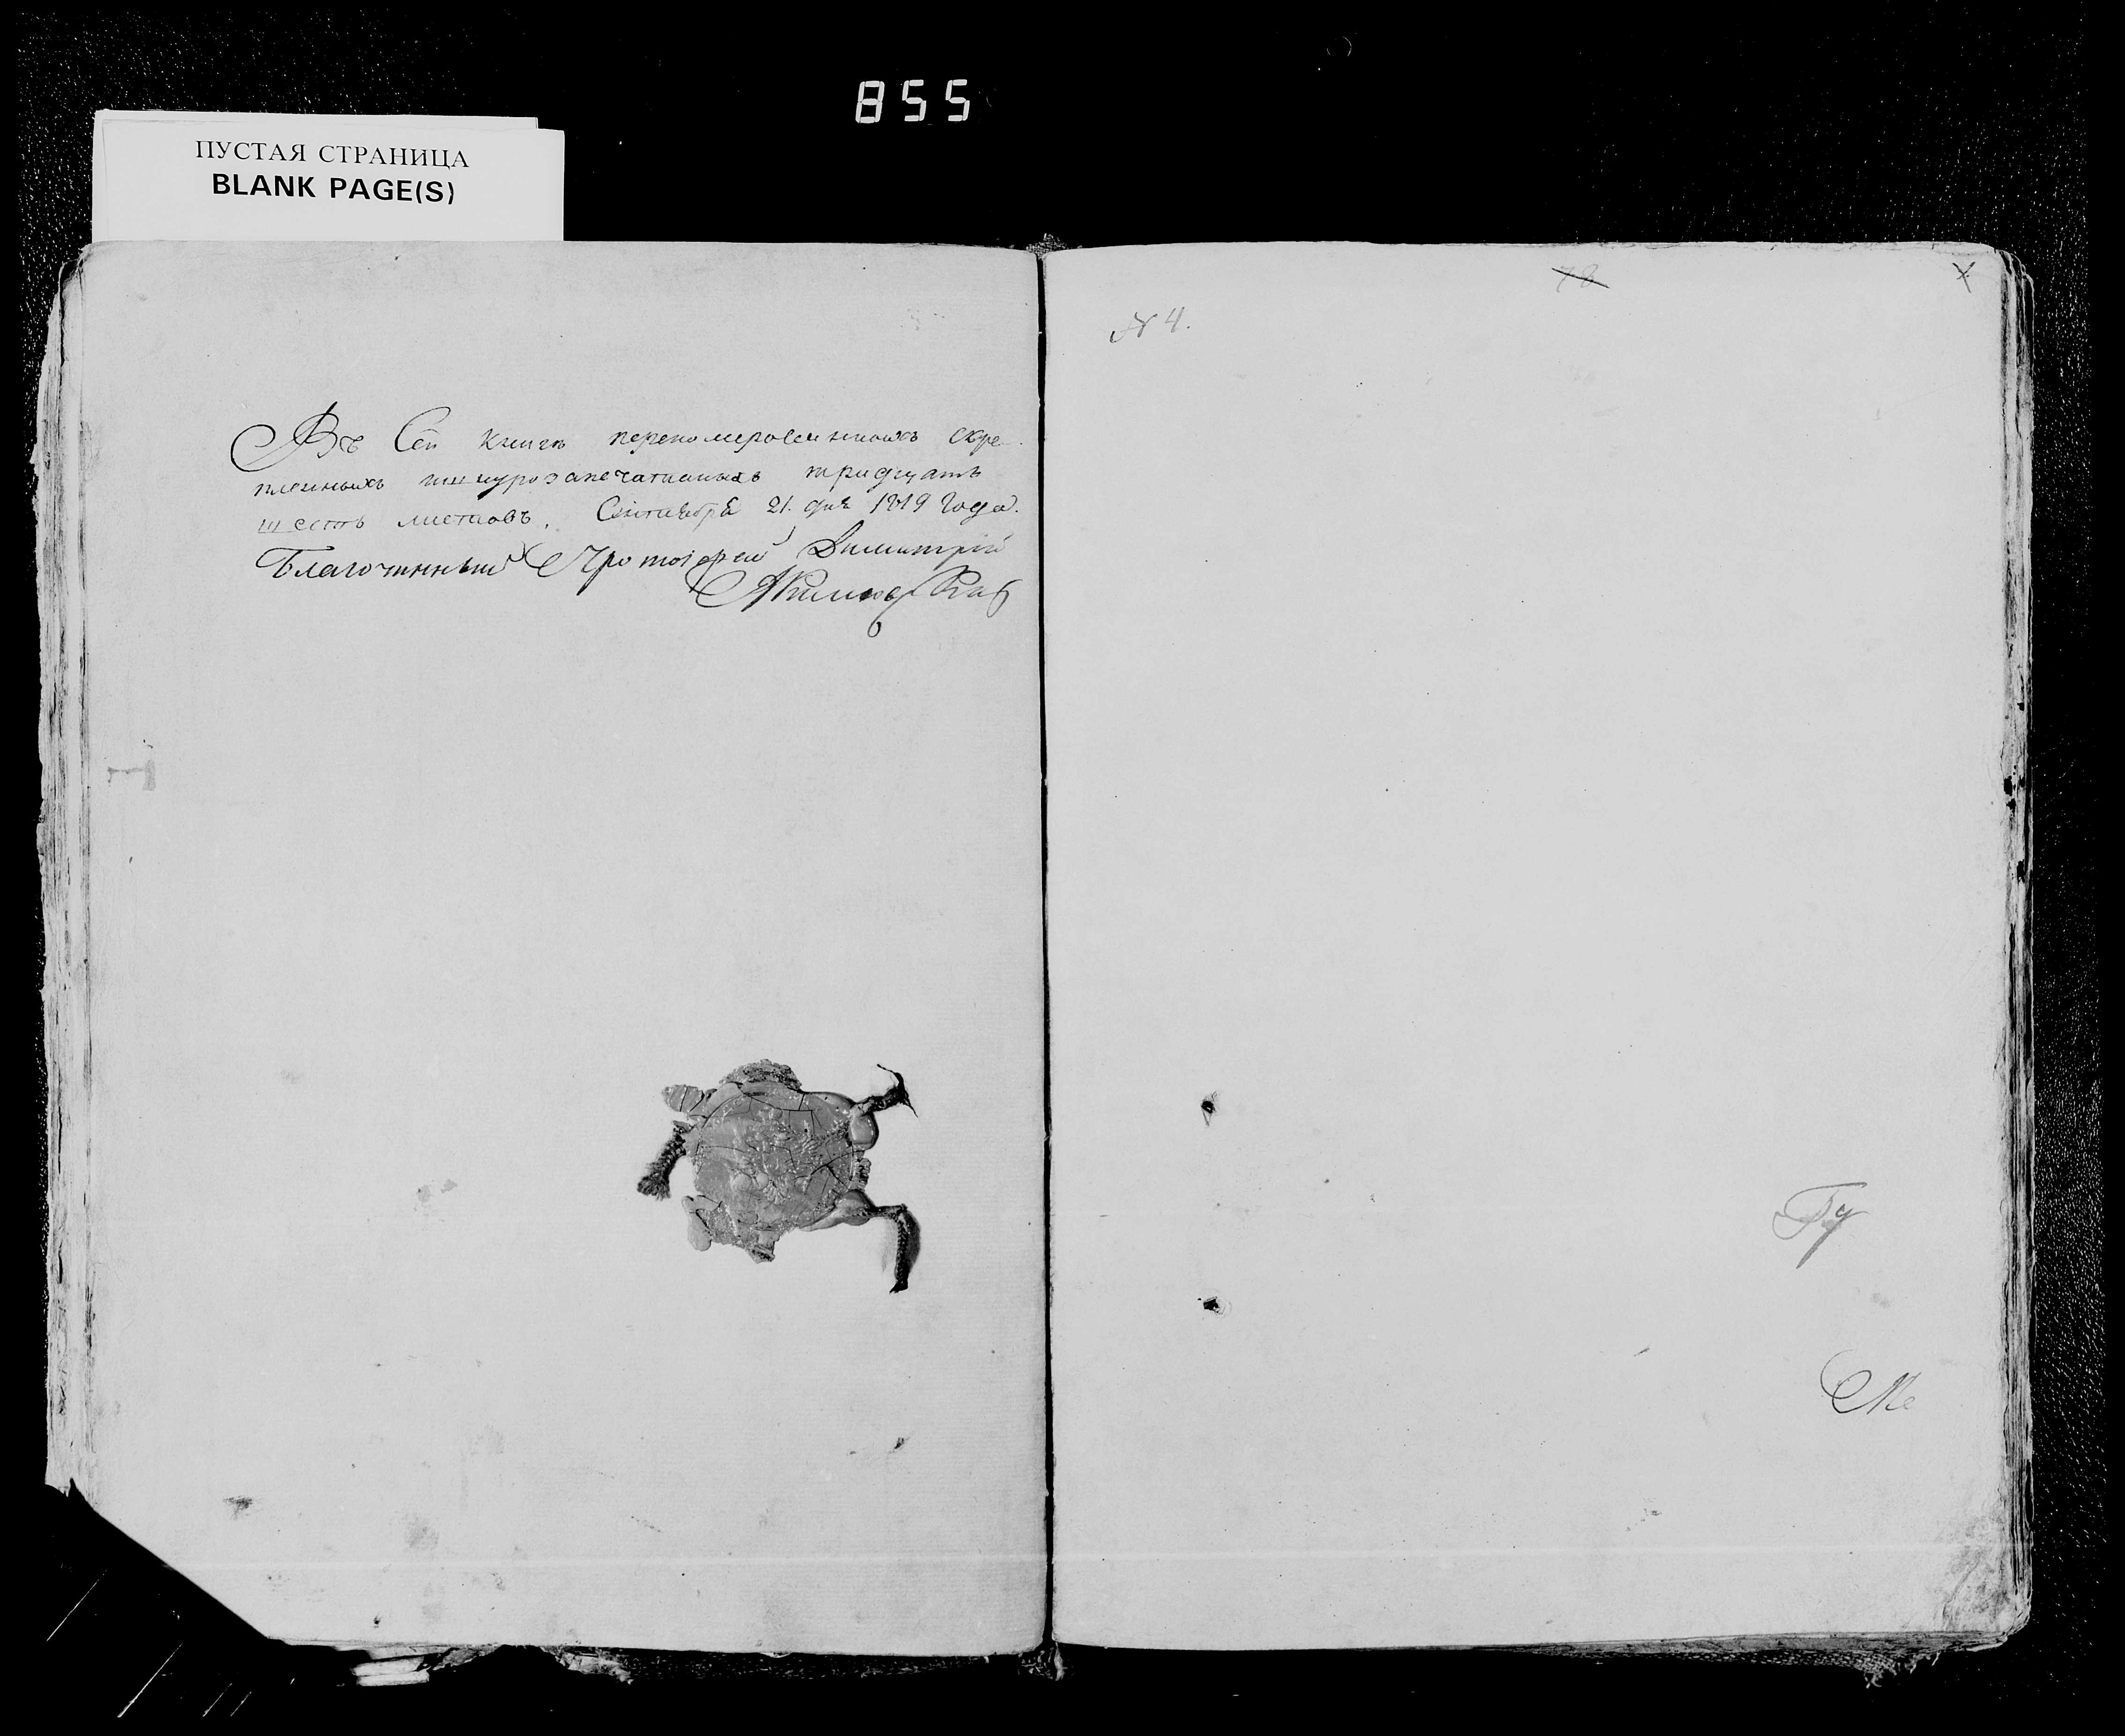 855
ПУСТАЯ СТРАНИЦА
BLANK PAGE(S)
Въ Сей книгѣ перекомеровенныхъ скре-
пленныхъ шнурозапечатаныхъ тридцать
шесть листовъ. Сентября 21. дня 1819 Года.
Благочинный Протоіерей Димитрій
78
N 4.
Гу
Ме